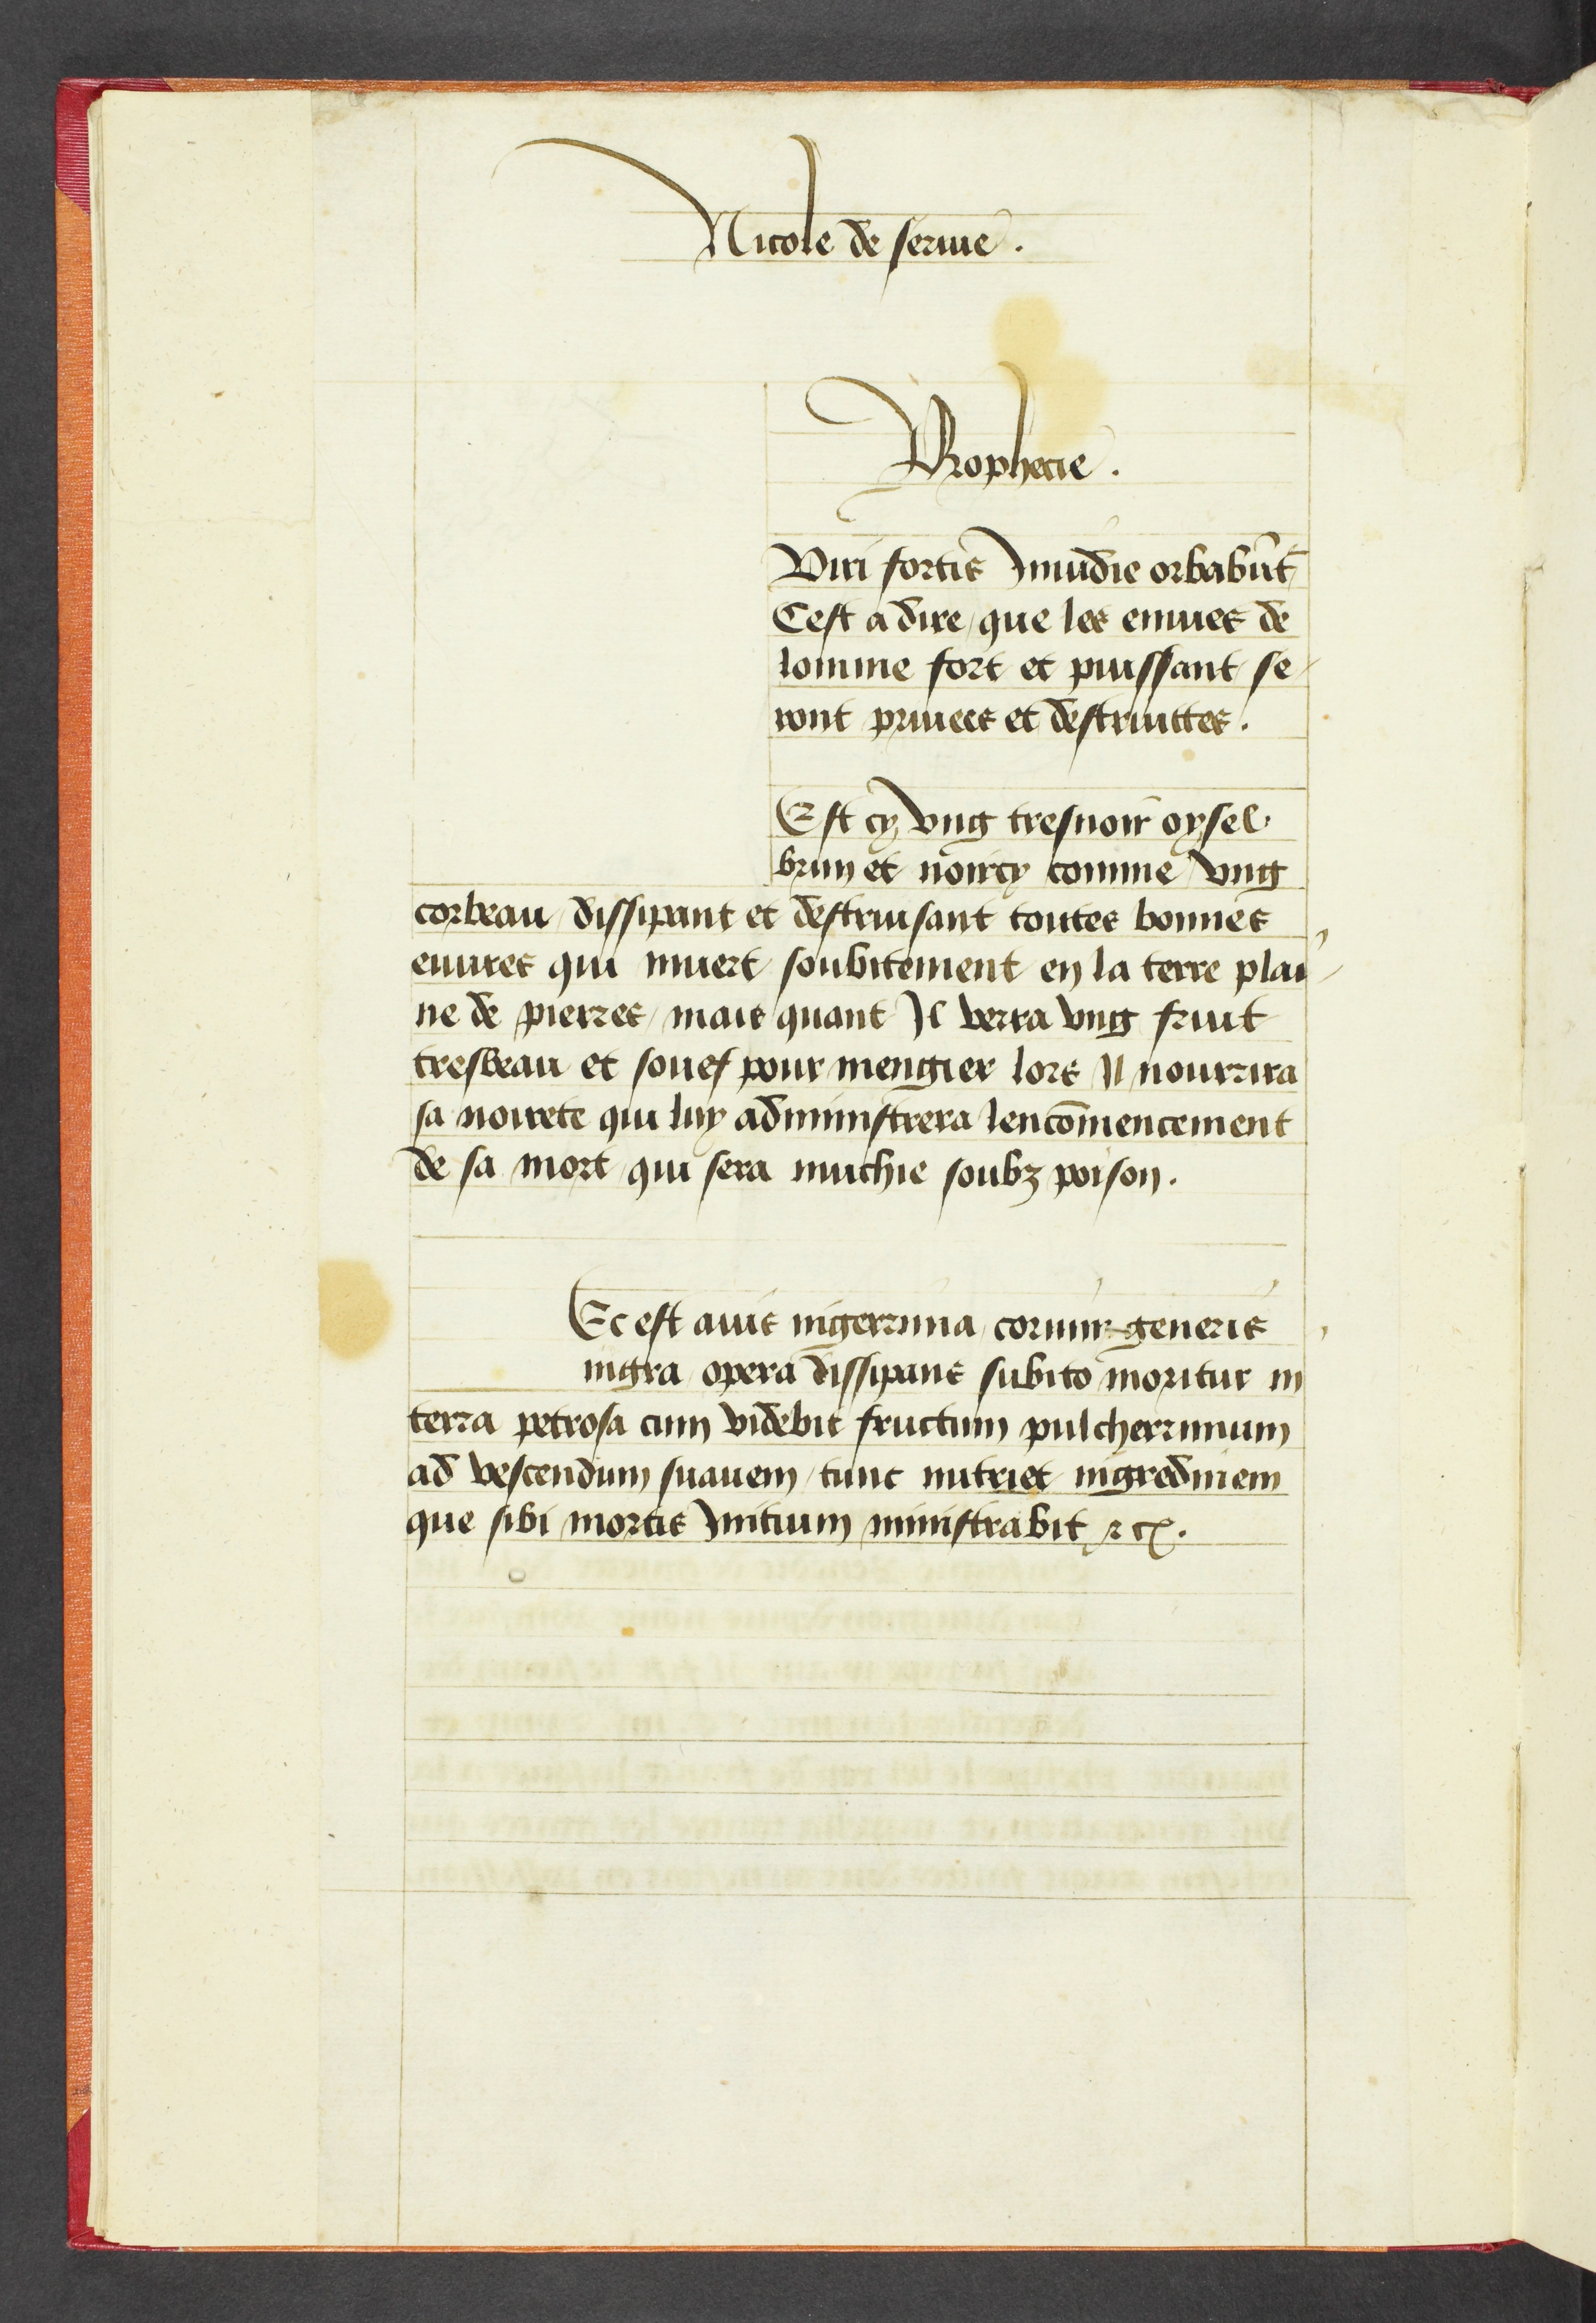 Nicole de serme.
Prophecie.
Viri fortis Inuidie orbabūt
Cest a dire / que les enuies de
lomme fort et puissant se-
ront priuees et destruittes.
Est cy vng tresnoir oysel
brun et noircy comme vng
corbeau / dissipant et destruisant toutes bonnes
euures qui muert soubitement en la terre plai-
ne de pierres / mais quant Il verra vng fruit
tresbeau et souef pour mengier lors Il nourrira
sa noirete qui luy administrera lencōmencement
de sa mort / qui sera muchie soubz poison.
Ec est auis nigerrima / coruini generis
nigra opera dissipans subito moritur in
terra petrosa cum videbit fructum pulcherrimum
ad vescendum suauem / tunc nutriet nigredinem
que sibi mortis Initium ministrabit ⁊ cͣ.